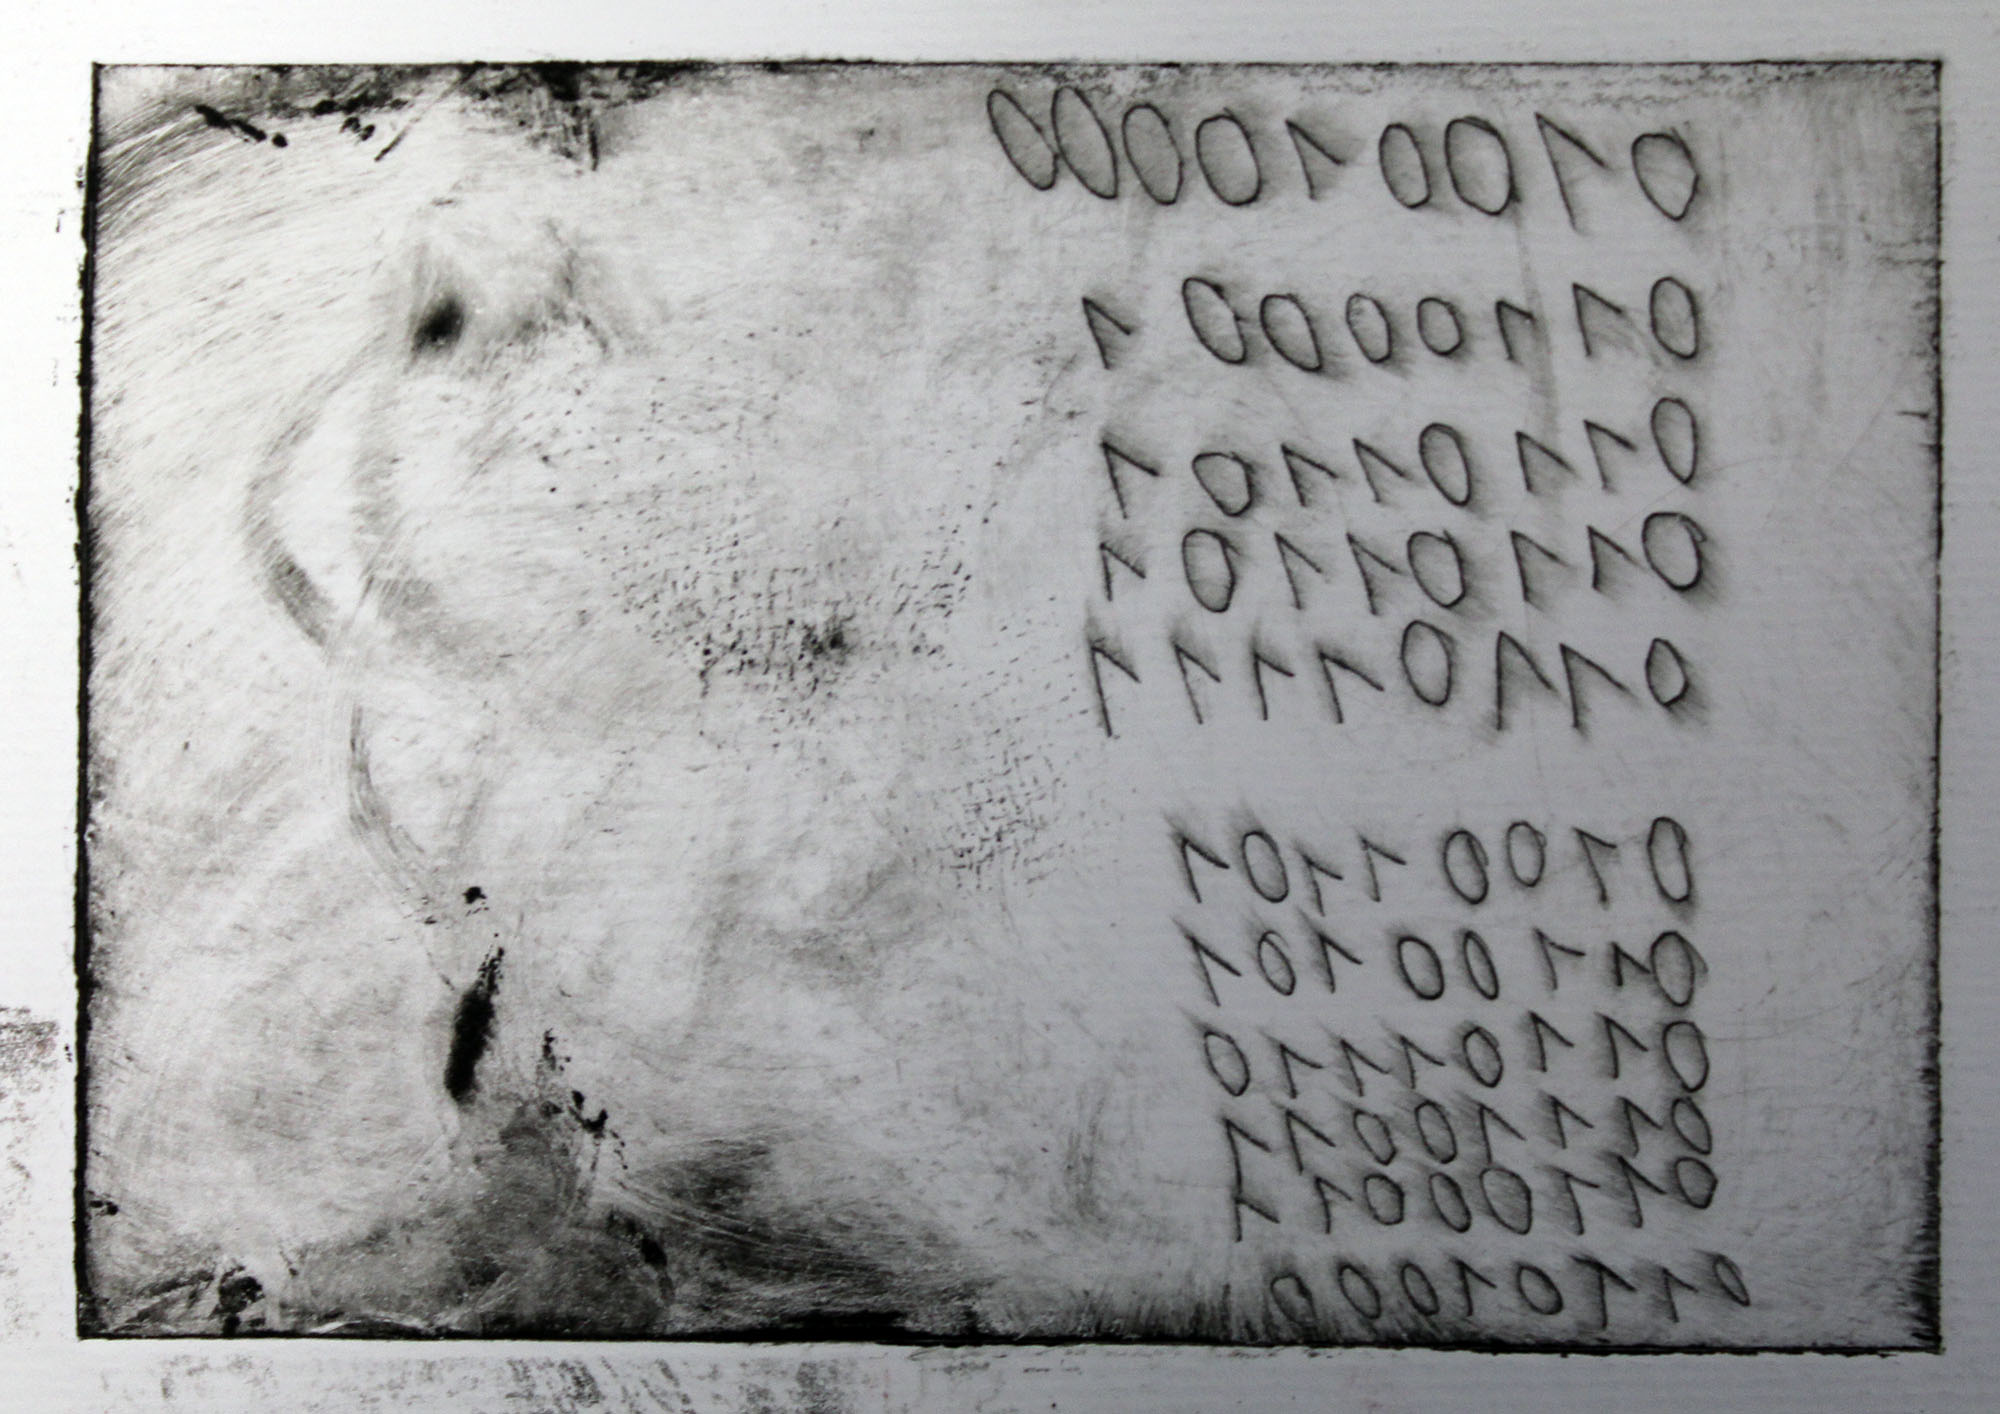 010010000
01100001
01101101
01101101
01101111
01001101
01100101
01101110
01110011
01100011
01101000